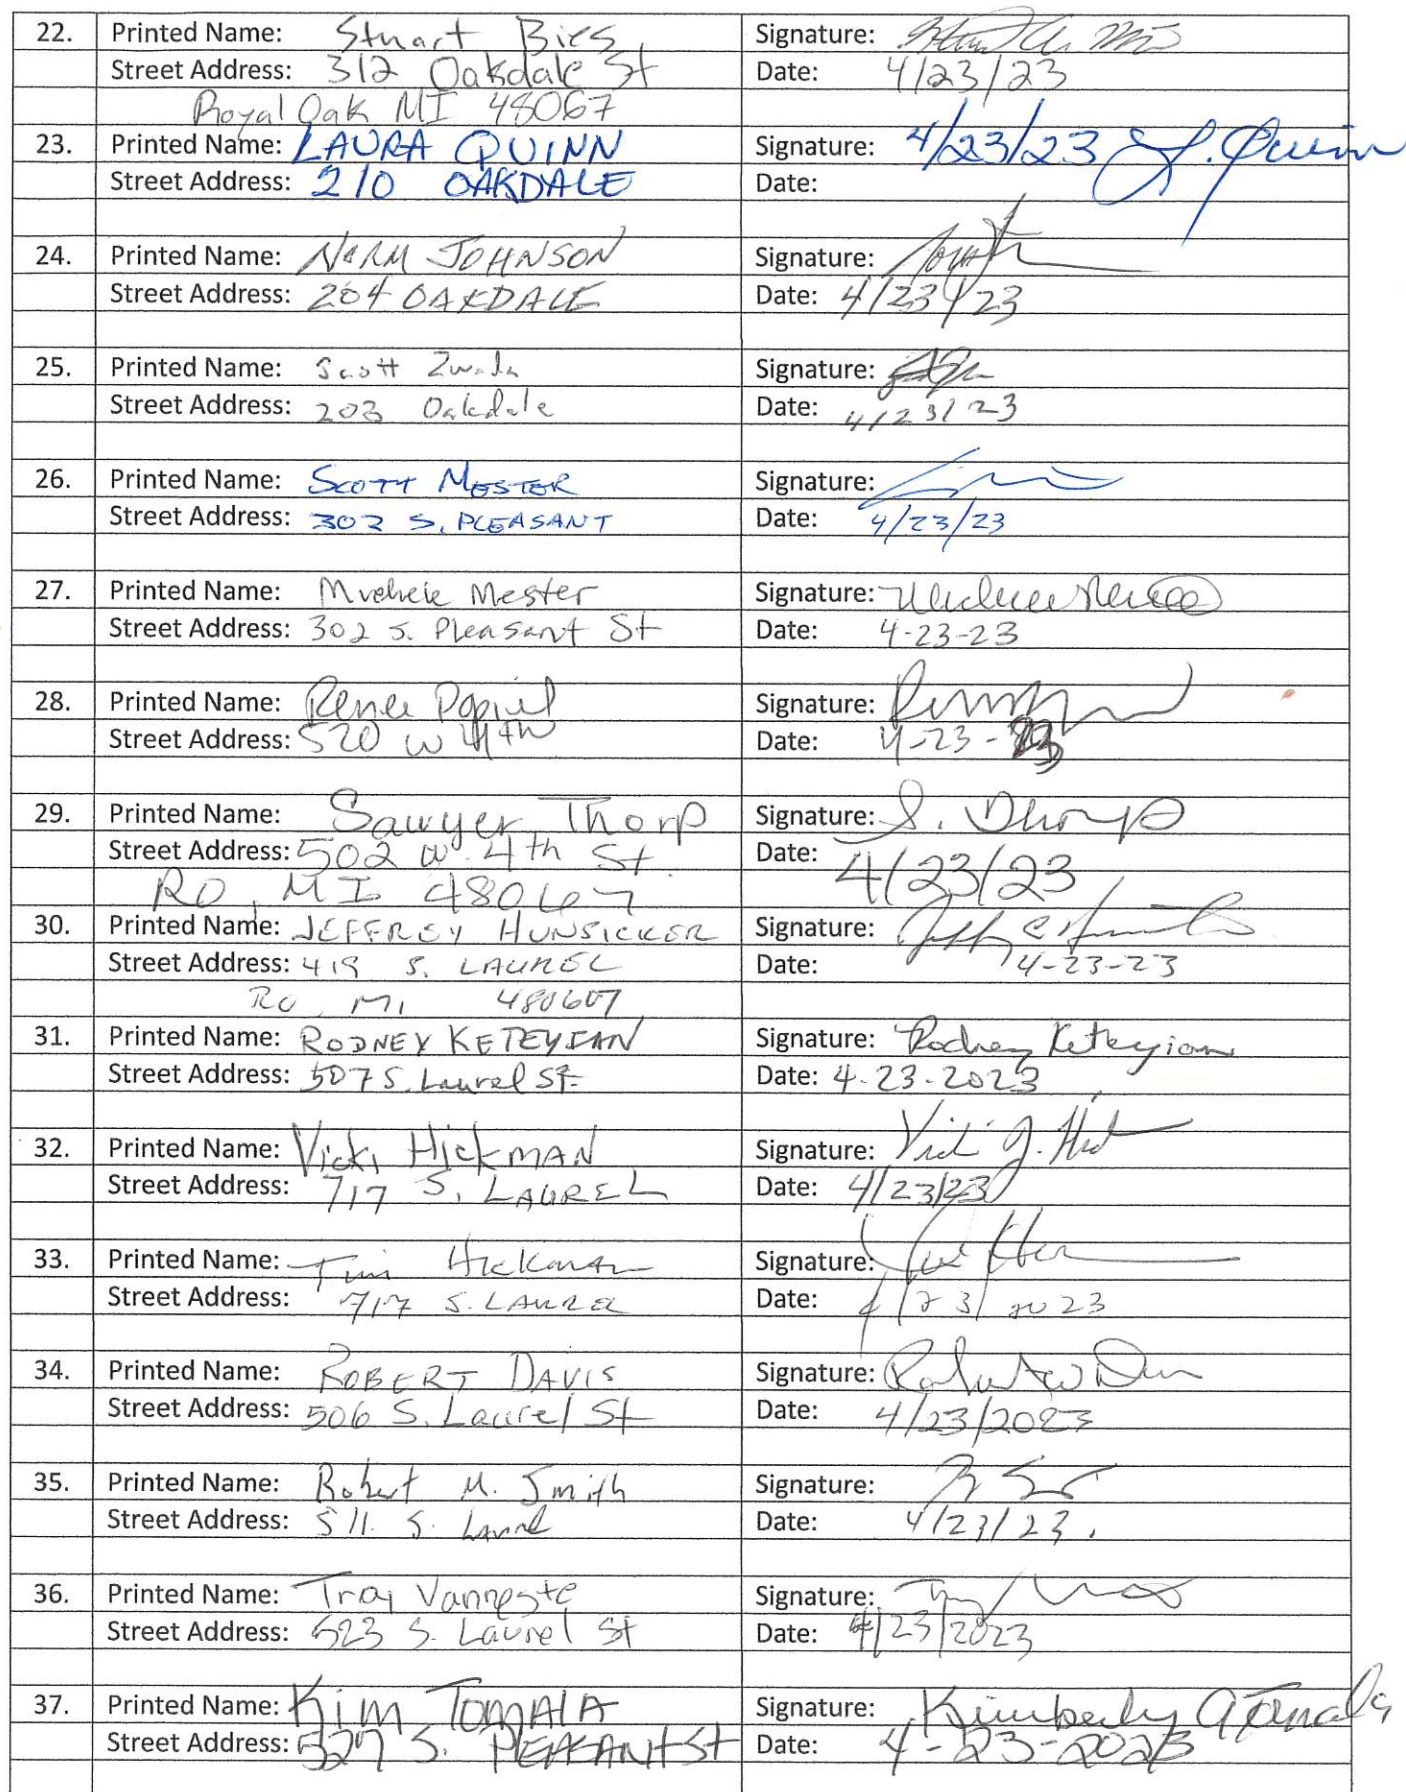 22. Printed Name: Stuart Bies Signature:
Street Address: 312 Oakdale St Date: 4/23/23
Royal Oak MI 48067
23. Printed Name: LAURA QUINN Signature: 4/23/23 L. Quinn
Street Address: 210 OAKDALE Date:
24. Printed Name: NORM JOHNSON Signature:
Street Address: 204 OAKDALE Date: 4/23/23
25. Printed Name: Scott Zwada Signature:
Street Address: 203 Oakdale Date: 4/23/23
26. Printed Name: SCOTT MESTER Signature:
Street Address: 302 S. PLEASANT Date: 4/23/23
27. Printed Name: Mester Signature:
Street Address: 302 S. Pleasant St Date: 4-23-23
28. Printed Name: Renee Popiel Signature:
Street Address: 520 W 4th Date: 4-23-23
29. Printed Name: Sawyer Thorp Signature: S. Thorp
Street Address: 502 W. 4th St Date: 4/23/23
RO, MI 48067
30. Printed Name: JEFFREY HUNSICKER Signature:
Street Address: 419 S. LAUREL Date: 4-23-23
RO, MI 48067
31. Printed Name: RODNEY KETEYIAN Signature: Rodney Keteyian
Street Address: 507 S. Laurel St. Date: 4.23.2023
32. Printed Name: Vicki HickMAN Signature: Vicki J.
Street Address: 717 S. LAUREL Date: 4/23/23
33. Printed Name: Tim Hickman Signature:
Street Address: 717 S. LAUREL Date: 4/23/2023
34. Printed Name: ROBERT DAVIS Signature:
Street Address: 506 S. Laurel St Date: 4/23/2023
35. Printed Name: Robert M. Smith Signature:
Street Address: 511 S. Laurel Date: 4/23/23.
36. Printed Name: Troy Vanneste Signature:
Street Address: 523 S. Laurel St Date: 4/23/2023
37. Printed Name: Kim TOMALA Signature: Kimberly A Tomala
Street Address: 527 S. PLEASANT St Date: 4-23-2023